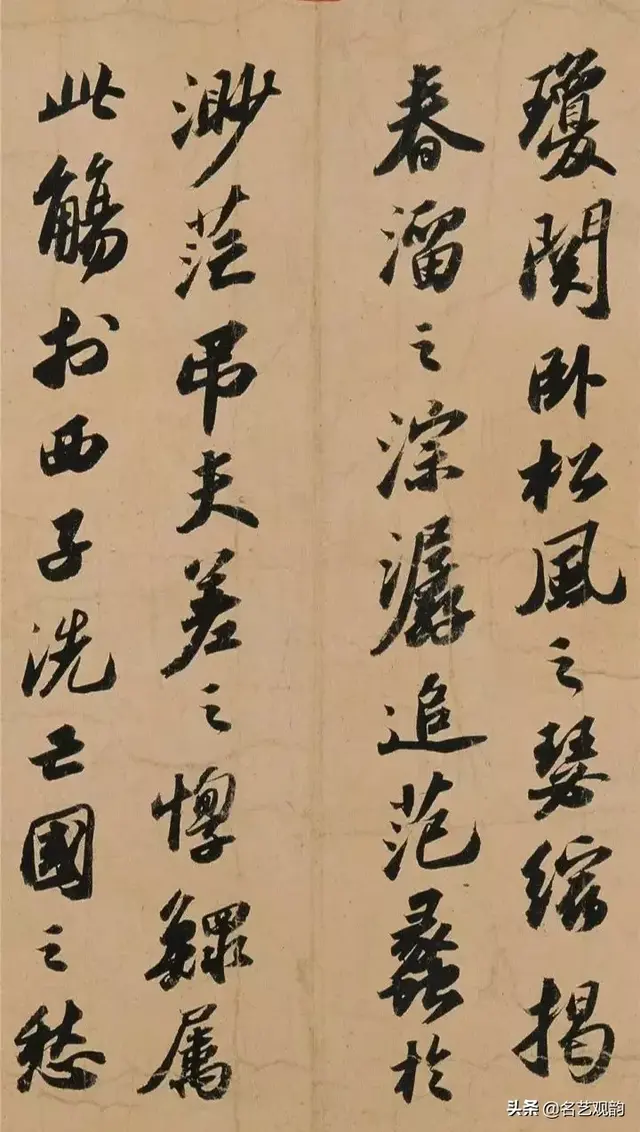 瓊関卧松風之瑟縮揭
春溜之淙潺追范蠡於
渺茫吊夫差之惸鰥属
此觴於西子洗亡國之愁
头条 @名艺观韵